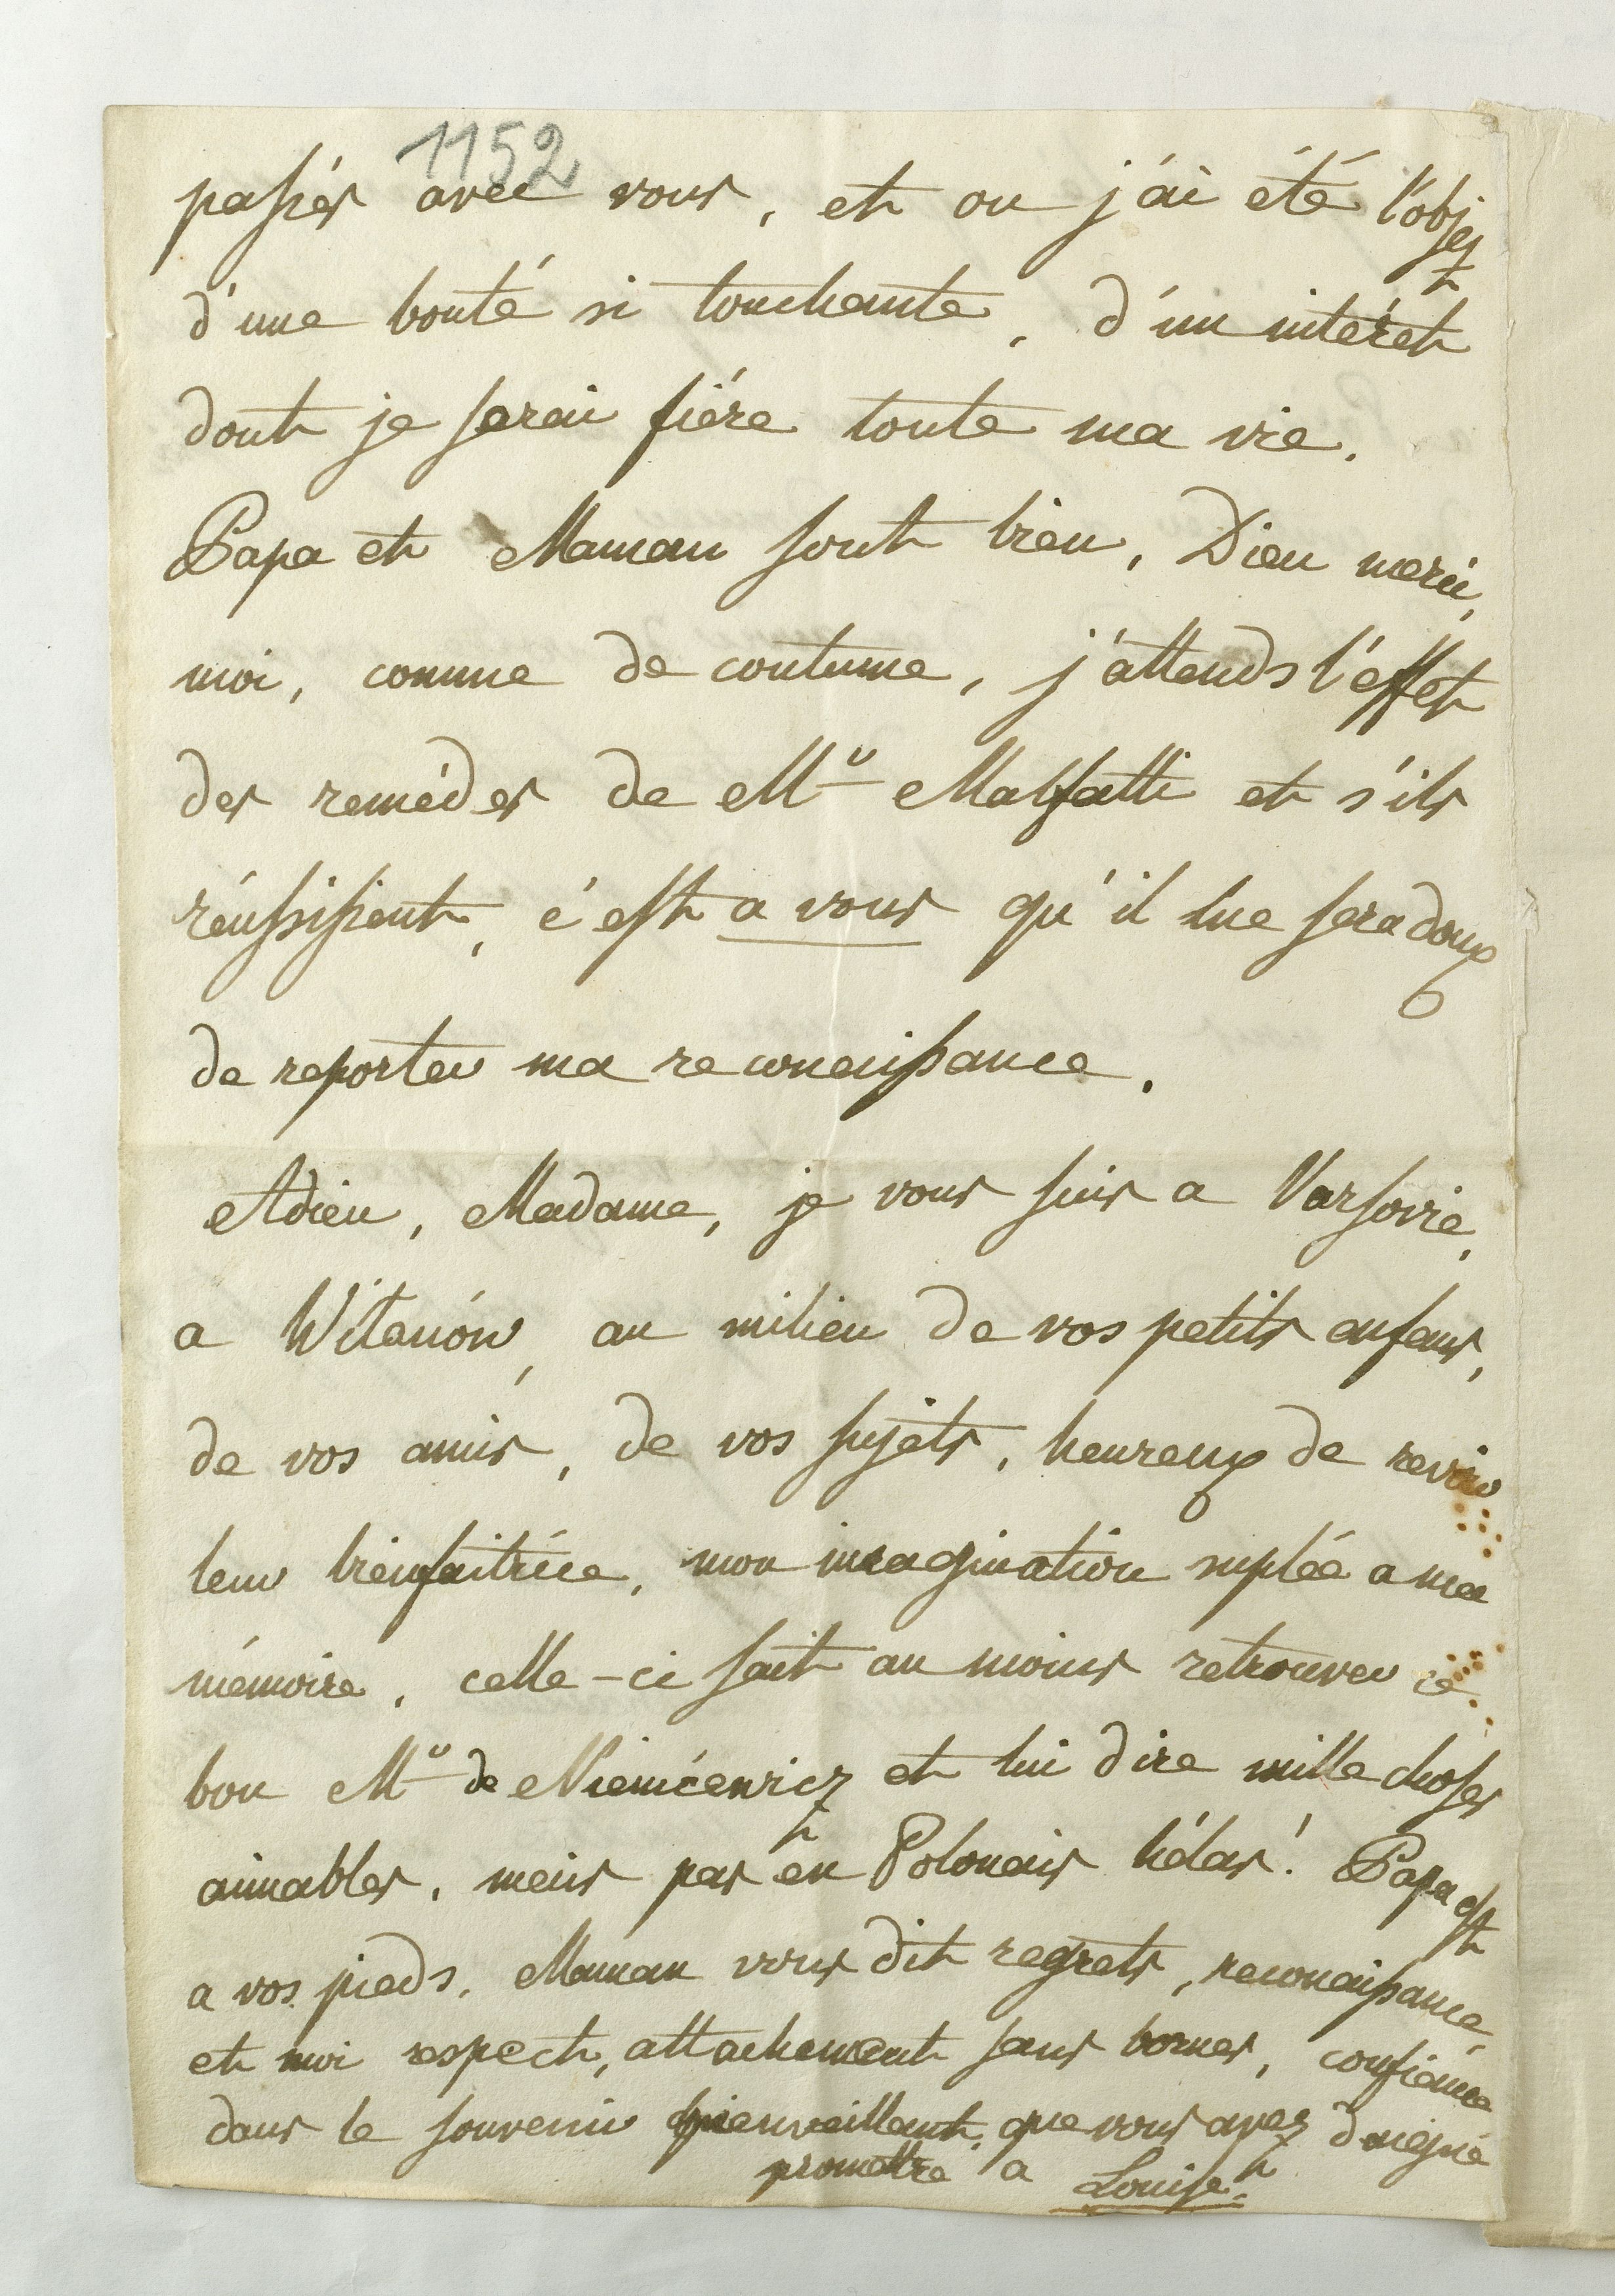 1152
passés avec vous, et ou j'ai été l'objet
d'une bonté si touchante, d'un intérêt
dont je serai fiére toute ma vie.
Papa et Maman sont bien, Dieu merci,
moi, comme de coutume, j'attends l'effet
des remédes de Mr Malfatti et s'ils
réussissent, c'est a vous qu'il me sera doux
de reporter ma reconaissance.
Adieu, Madame, je vous suis a Varsovie,
a Witanów, au milieu de vos petits enfans,
de vos amis, de vos sujets, heureux de revoir
leur bienfaitrice, mon imagination suplée a ma
mémoire, celle-ci sait au moins retrouver ce
bon Mr de Niemcewicz et lui dire mille choses
aimables, mais pas en Polonais hélas! Papa est
a vos pieds, Maman vous dit regrets, reconaissance,
et moi respect, attachement sans bornes, confiance
dans le souvenir bienveillant, que vous avez daigné
promettre a Louise.